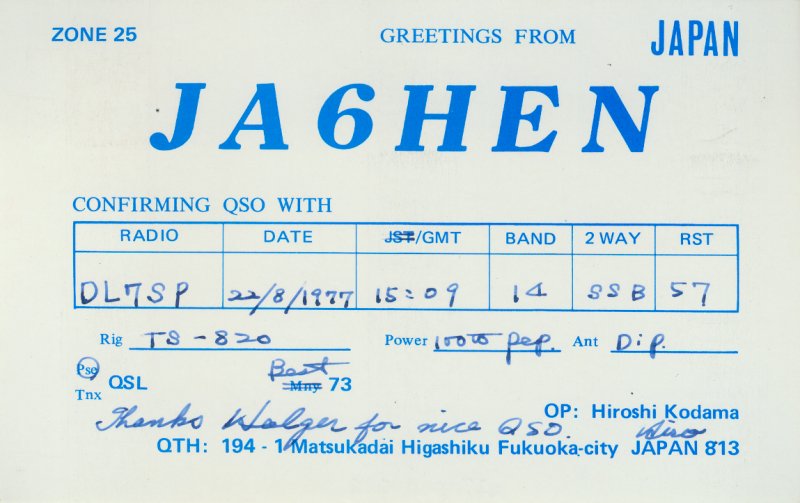 ZONE 25 GREETINGS FROM JAPAN
JA6HEN
CONFIRMING QSO WITH
RADIO DATE JST/GMT BAND 2 WAY RST
DL7SP 22/8/1977 15:09 14 SSB 57
Rig TS-820 Power 100W pep. Ant Dip.
Pse QSL Best
Tnx Mny 73
OP: Hiroshi Kodama
Thanks Holger for nice QSO. Hiro
QTH: 194 - 1 Matsukadai Higashiku Fukuoka-city JAPAN 813